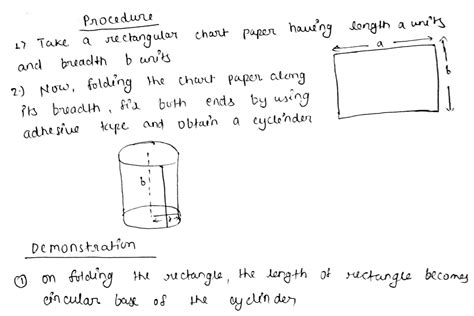 Procedure
1.) Take a rectangular chart paper having length a units
and breadth b units
2.) Now, folding the chart paper along
its breadth, fix both ends by using
adhesive tape and obtain a cyclinder
a
b
b
r
Demonstration
① on folding the rectangle, the length of rectangle becomes
circular base of the cylinder